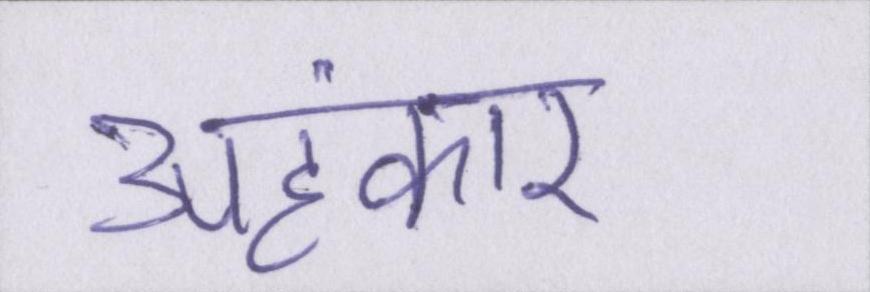 अहंकार